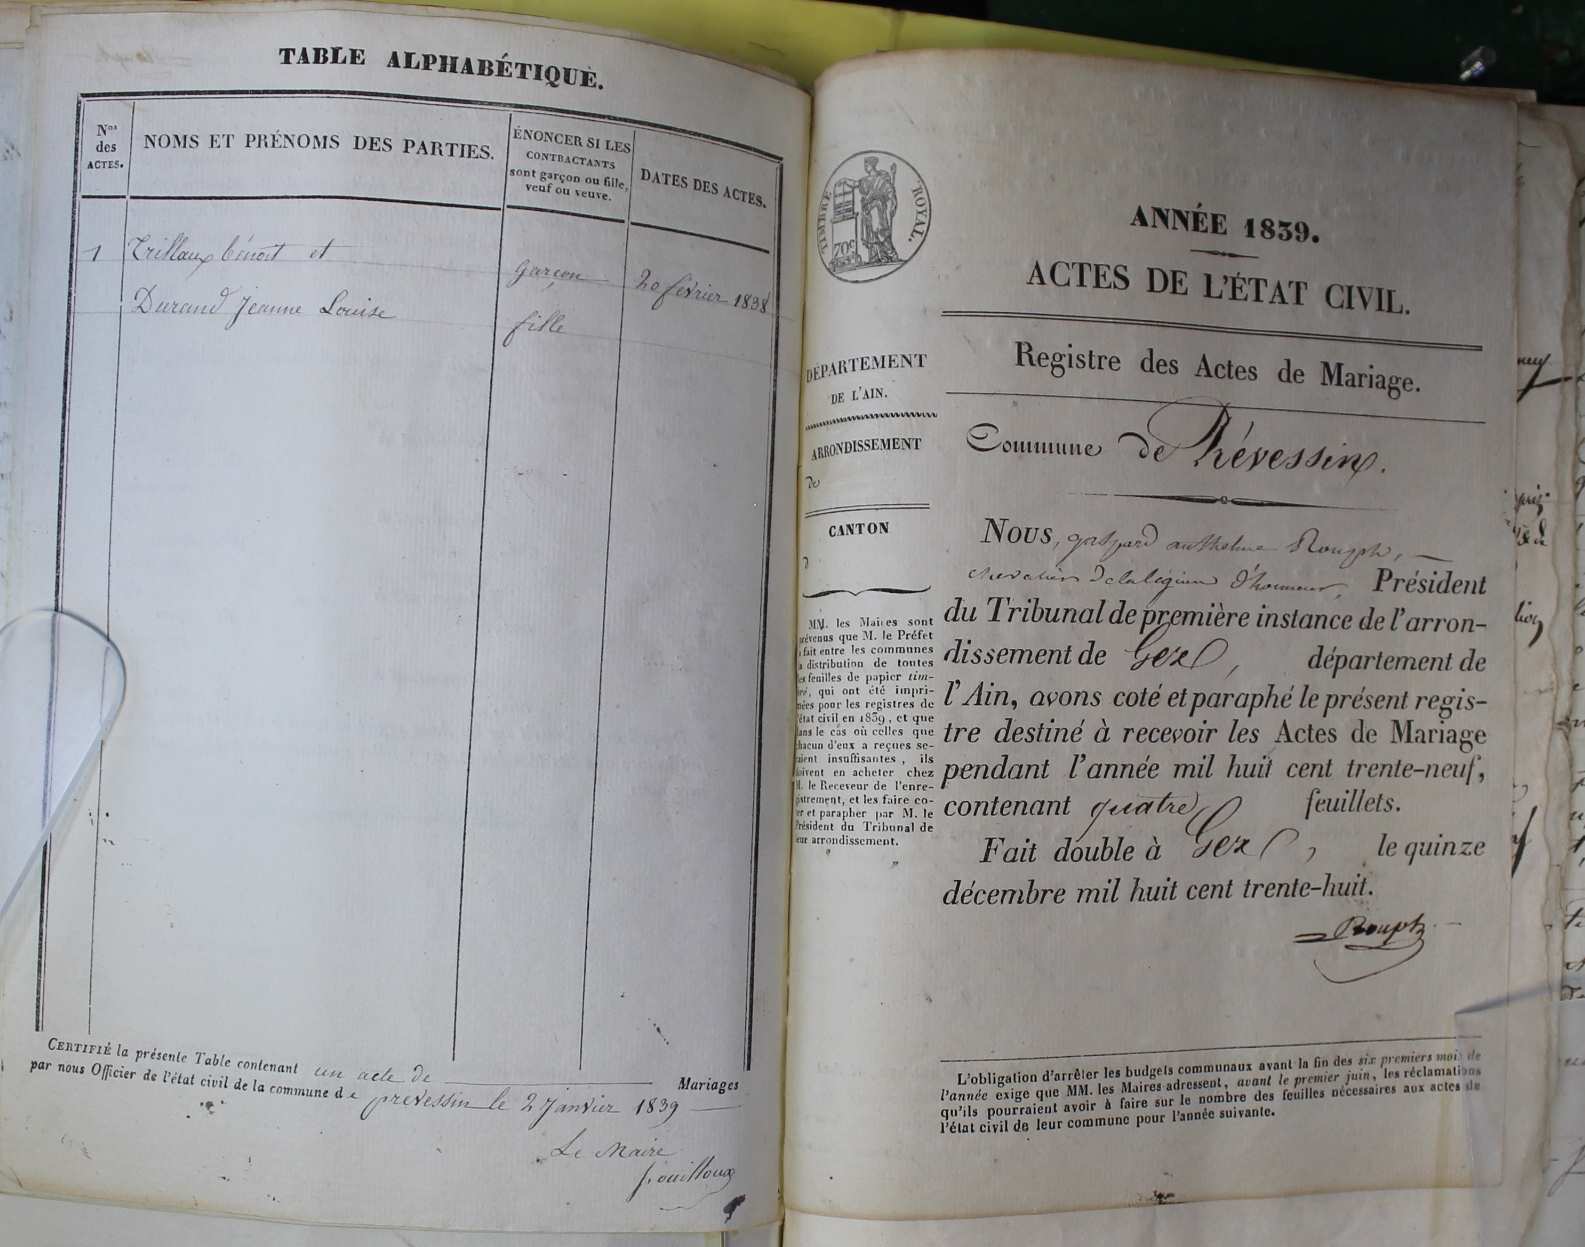 TABLE ALPHABÉTIQUE.
Nos des ACTES.
NOMS ET PRÉNOMS DES PARTIES.
ÉNONCER SI LES
CONTRACTANTS
sont garçon ou fille,
veuf ou veuve.
DATES DES ACTES.
1
Trillaux bénoit et
garçon
20 février 1838
Durand Jeanne Louise
fille
CERTIFIÉ la présente Table contenant un acte de Mariages
par nous Officier de l'état civil de la commune de prevessin le 2 Janvier 1839
Le Maire
TIMBRE ROYAL.
70c
ANNÉE 1839.
ACTES DE L'ÉTAT CIVIL.
Registre des Actes de Mariage.
DÉPARTEMENT
DE L'AIN.
ARRONDISSEMENT
de
CANTON
d
MM. les Maires sont
prévenus que M. le Préfet
a fait entre les communes
la distribution de toutes
les feuilles de papier tim-
bré, qui ont été impri-
mées pour les registres de
l'état civil en 1839, et que
dans le cas où celles que
chacun d'eux a reçues se-
raient insuffisantes, ils
doivent en acheter chez
M. le Receveur de l'enre-
gistrement, et les faire co-
ter et parapher par M. le
Président du Tribunal de
leur arrondissement.
Commune de Prévessin.
Nous, gaspard anthelme Rouph,
chevalier de la légion d'honneur, Président
du Tribunal de première instance de l'arron-
dissement de Gex, département de
l'Ain, avons coté et paraphé le présent regis-
tre destiné à recevoir les Actes de Mariage
pendant l'année mil huit cent trente-neuf,
contenant quatre feuillets.
Fait double à Gex, le quinze
décembre mil huit cent trente-huit.
Rouph
L'obligation d'arrêter les budgets communaux avant la fin des six premiers mois de
l'année exige que MM. les Maires adressent, avant le premier juin, les réclamations
qu'ils pourraient avoir à faire sur le nombre des feuilles nécessaires aux actes de
l'état civil de leur commune pour l'année suivante.